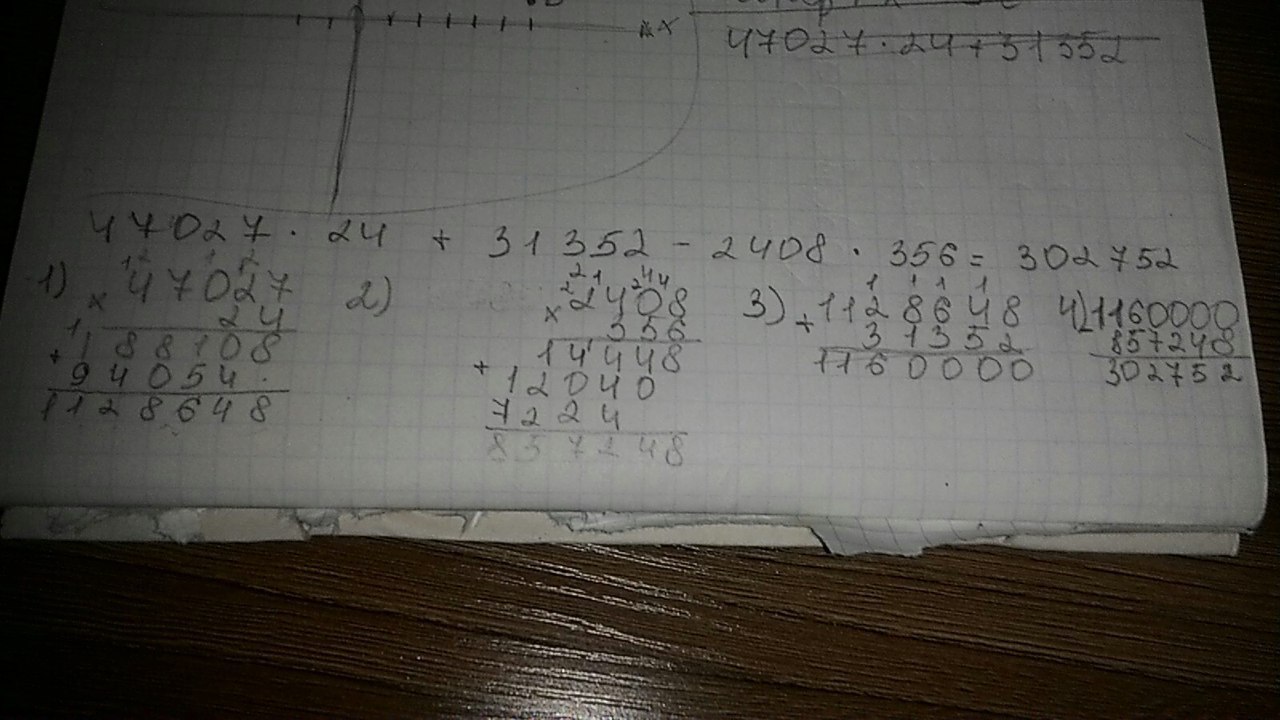 x
47027 · 24 + 31352
47027 · 24 + 31352 - 2408 · 356 = 302752
1) × 47027
24
+ 188108
94054
1128648
2) × 2408
356
+ 14448
12040
7224
857248
3) + 1128648
31352
1160000
4) 1160000
857248
302752